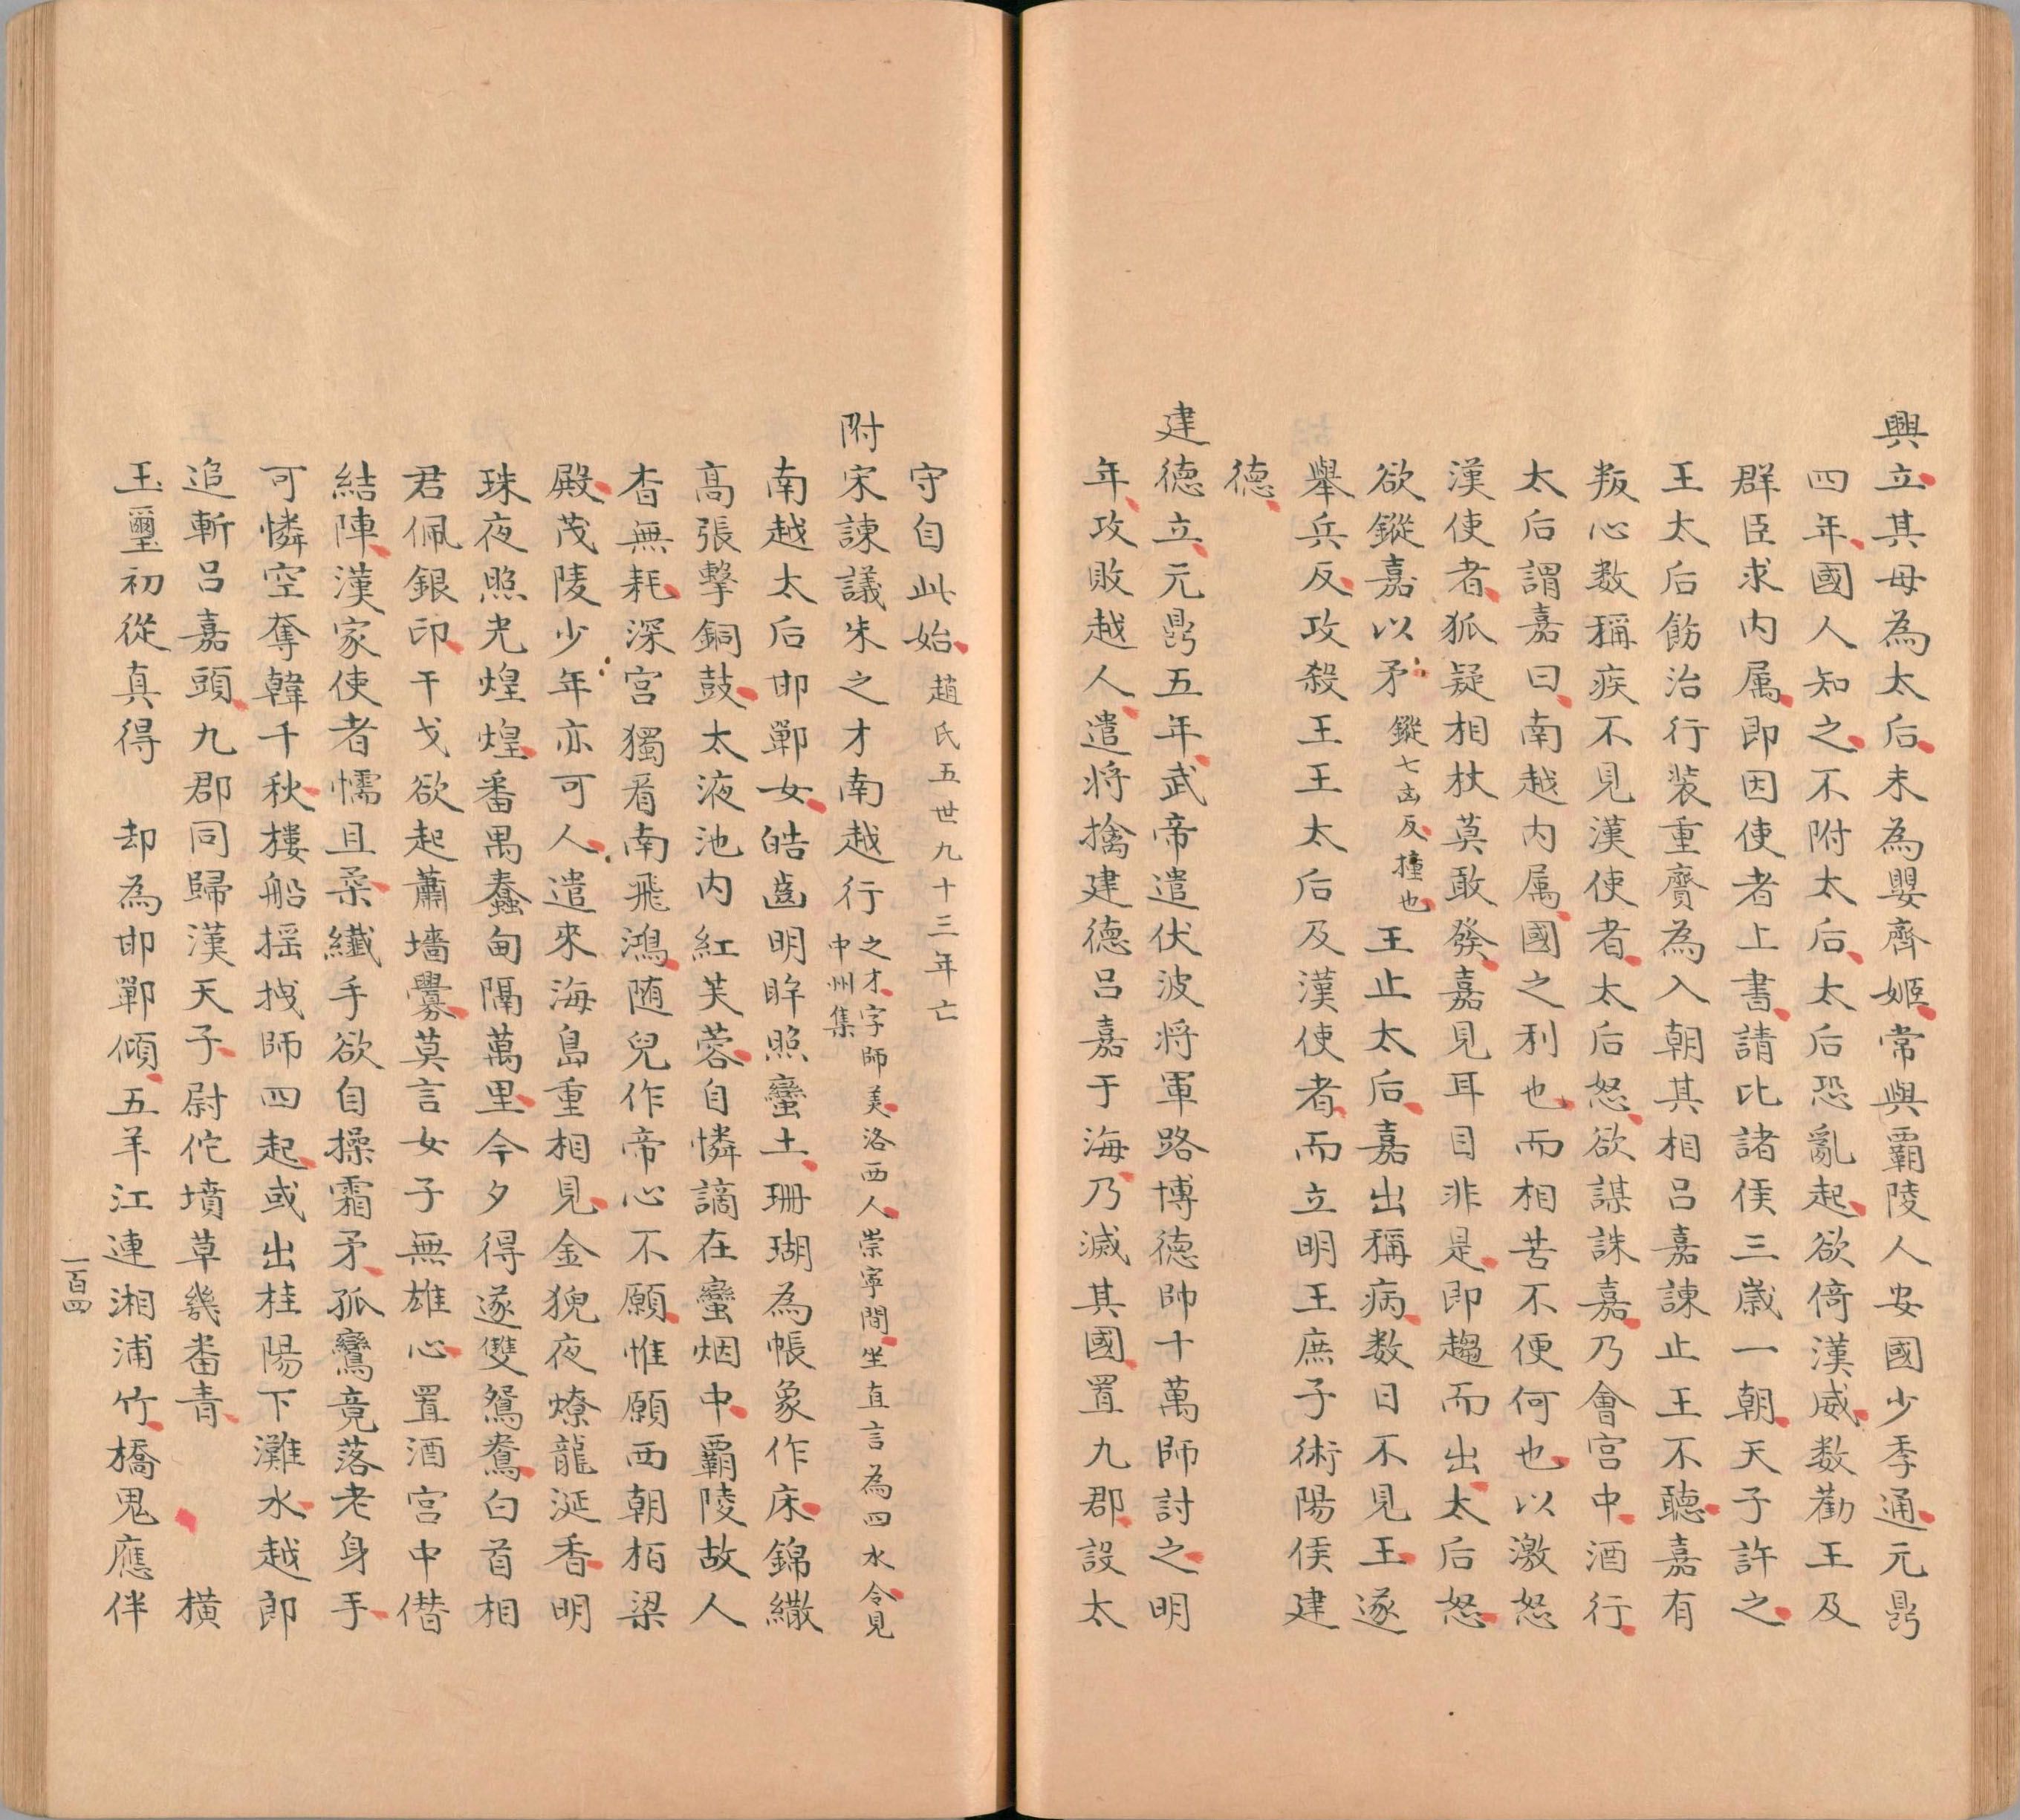 興立其母為太后未為嬰齊姬常與霸陵人安國少季通元鼎
四年國人知之不附太后太后恐亂起欲倚漢威数勸王及
群臣求内属即因使者上書請比諸侯三嵗一朝天子許之
王太后飭治行装重賷為入朝其相吕嘉諫止王不聽嘉有
叛心数稱疾不見漢使者太后怒欲謀誅嘉乃會宫中酒行
太后謂嘉曰南越内属國之利也而相苦不便何也以激怒
漢使者狐疑相杖莫敢發嘉見耳目非是即趨而出太后怒
欲鏦嘉以矛鏦七凶反撞也王止太后嘉出稱病数日不見王遂
舉兵反攻殺王王太后及漢使者而立明王庶子術陽侯建
德
建德立元鼎五年武帝遣伏波將軍路博德帥十萬師討之明
年攻敗越人遣將擒建德吕嘉于海乃滅其國置九郡設太
守自此始趙氏五世九十三年亡
附宋諫議朱之才南越行之才字師美洛西人崇寧間坐直言為四水令見
中州集
南越太后邯鄲女皓齒明眸照蠻土珊瑚為帳象作床錦繖
高張擊銅鼓太液池内紅芙蓉自憐謫在蠻烟中霸陵故人
杳無耗深宫獨看南飛鴻随兒作帝心不願惟願西朝栢梁
殿茂陵少年亦可人遣來海島重相見金猊夜燎龍涎香明
珠夜照光煌煌番禺蠢甸隔萬里今夕得遂雙鴛鴦白首相
君佩銀印干戈欲起蕭墻釁莫言女子無雄心置酒宫中僣
結陣漢家使者懦且柔纖手欲自操霜矛孤鸞竟落老身手
可憐空奪韓千秋樓船揺拽師四起或出桂陽下灘水越郎
追斬吕嘉頭九郡同歸漢天子尉佗墳草幾畨青 横
玉璽初從真得 却為邯鄲傾五羊江連湘浦竹橋鬼應伴
一百四